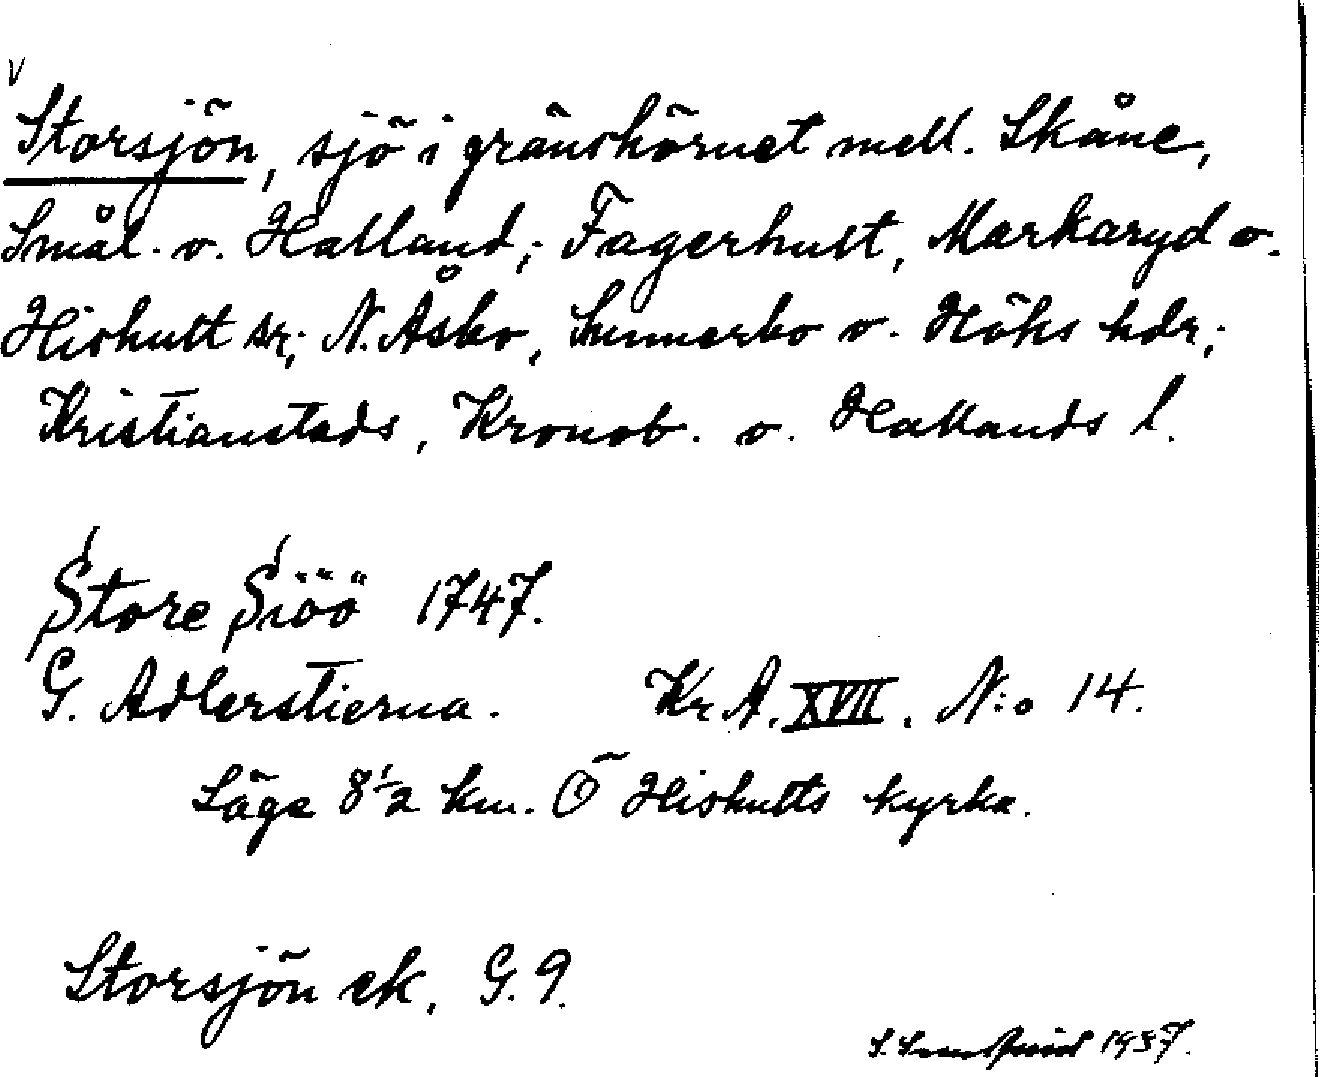 v
Storsjön, sjö i gränshörnet mell. Skåne,
Smål. o. Halland; Fagerhult, Markaryd o.
Hishult sr; N. Åsbo, Sunnerbo o. Höks hdr;
Kristianstads, Kronob. o. Hallands l.
Store Siöö 1747.
G. Adlerstierna. Kr. A. XVII. N:o 14.
Läge 8 1/2 km. Ö Hishults kyrka.
Storsjön ek. G. 9.
S. 1937.